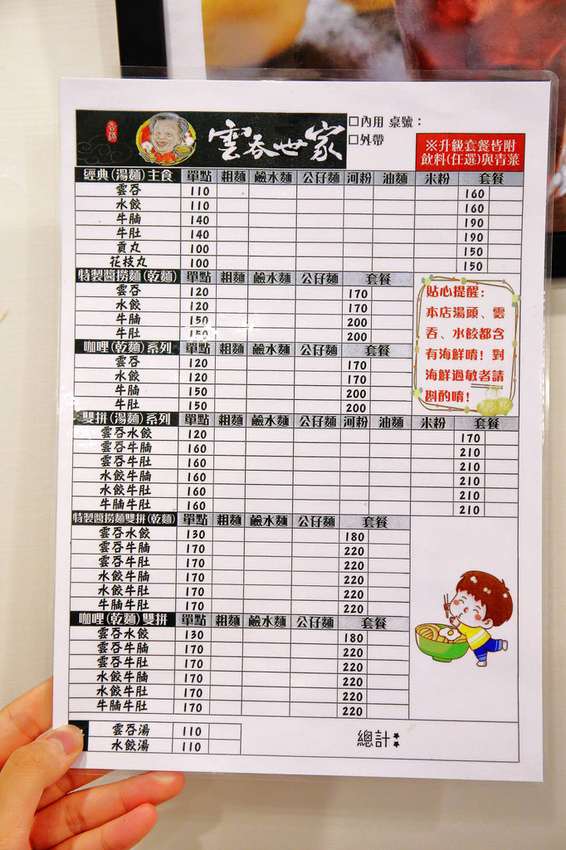 雲吞世家
□內用 桌號：
□外帶
※升級套餐皆附
飲料(任選)與青菜
經典(湯麵)主食 單點 粗麵 鹼水麵 公仔麵 河粉 油麵 米粉 套餐
雲吞 110 160
水餃 110 160
牛腩 140 190
牛肚 140 190
貢丸 100 150
花枝丸 100 150
特製醬撈麵(乾麵) 單點 粗麵 鹼水麵 公仔麵 套餐
雲吞 120 170
水餃 120 170
牛腩 150 200
牛肚 150 200
咖哩(乾麵)系列 單點 粗麵 鹼水麵 公仔麵 套餐
雲吞 120 170
水餃 120 170
牛腩 150 200
牛肚 150 200
貼心提醒：
本店湯頭、雲
吞、水餃都含
有海鮮唷！對
海鮮過敏者請
斟酌唷！
雙拼(湯麵)系列 單點 粗麵 鹼水麵 公仔麵 河粉 油麵 米粉 套餐
雲吞水餃 120 170
雲吞牛腩 160 210
雲吞牛肚 160 210
水餃牛腩 160 210
水餃牛肚 160 210
牛腩牛肚 160 210
特製醬撈麵雙拼(乾麵) 單點 粗麵 鹼水麵 公仔麵 套餐
雲吞水餃 130 180
雲吞牛腩 170 220
雲吞牛肚 170 220
水餃牛腩 170 220
水餃牛肚 170 220
牛腩牛肚 170 220
咖哩(乾麵)雙拼 單點 粗麵 鹼水麵 公仔麵 套餐
雲吞水餃 130 180
雲吞牛腩 170 220
雲吞牛肚 170 220
水餃牛腩 170 220
水餃牛肚 170 220
牛腩牛肚 170 220
雲吞湯 110
水餃湯 110
總計：